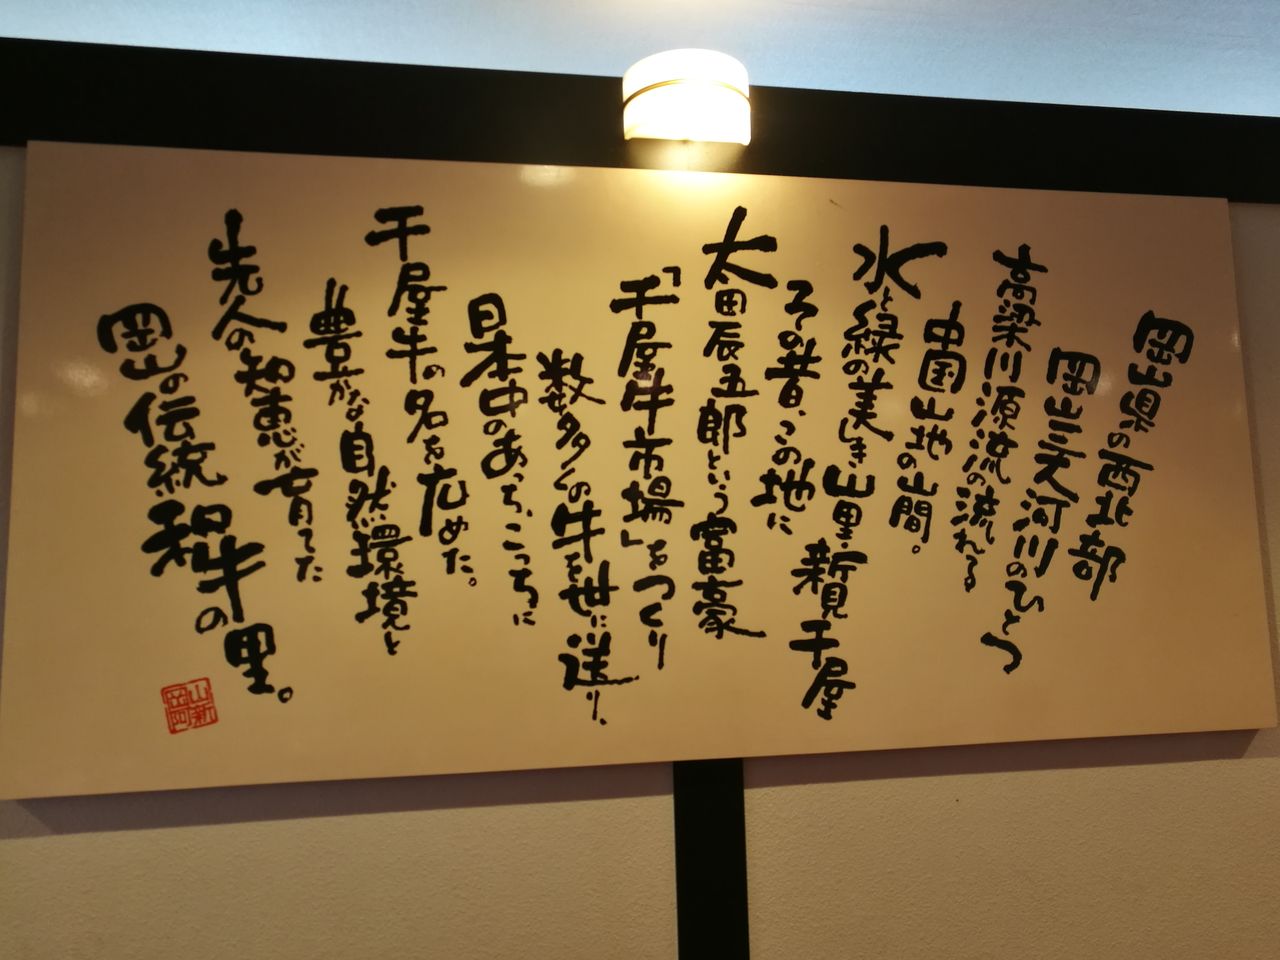 岡山県の西北部
岡山三大河川のひとつ
高梁川源流の流れる
中国山地の山間。
水と緑の美しき山里・新見千屋
その昔、この地に
太田辰五郎という富豪
「千屋牛市場」をつくり
数多くの牛を世に送り、
日本中のあっち、こっちに
千屋牛の名を広めた。
豊かな自然環境と
先人の知恵が育てた
岡山の伝統和牛の里。